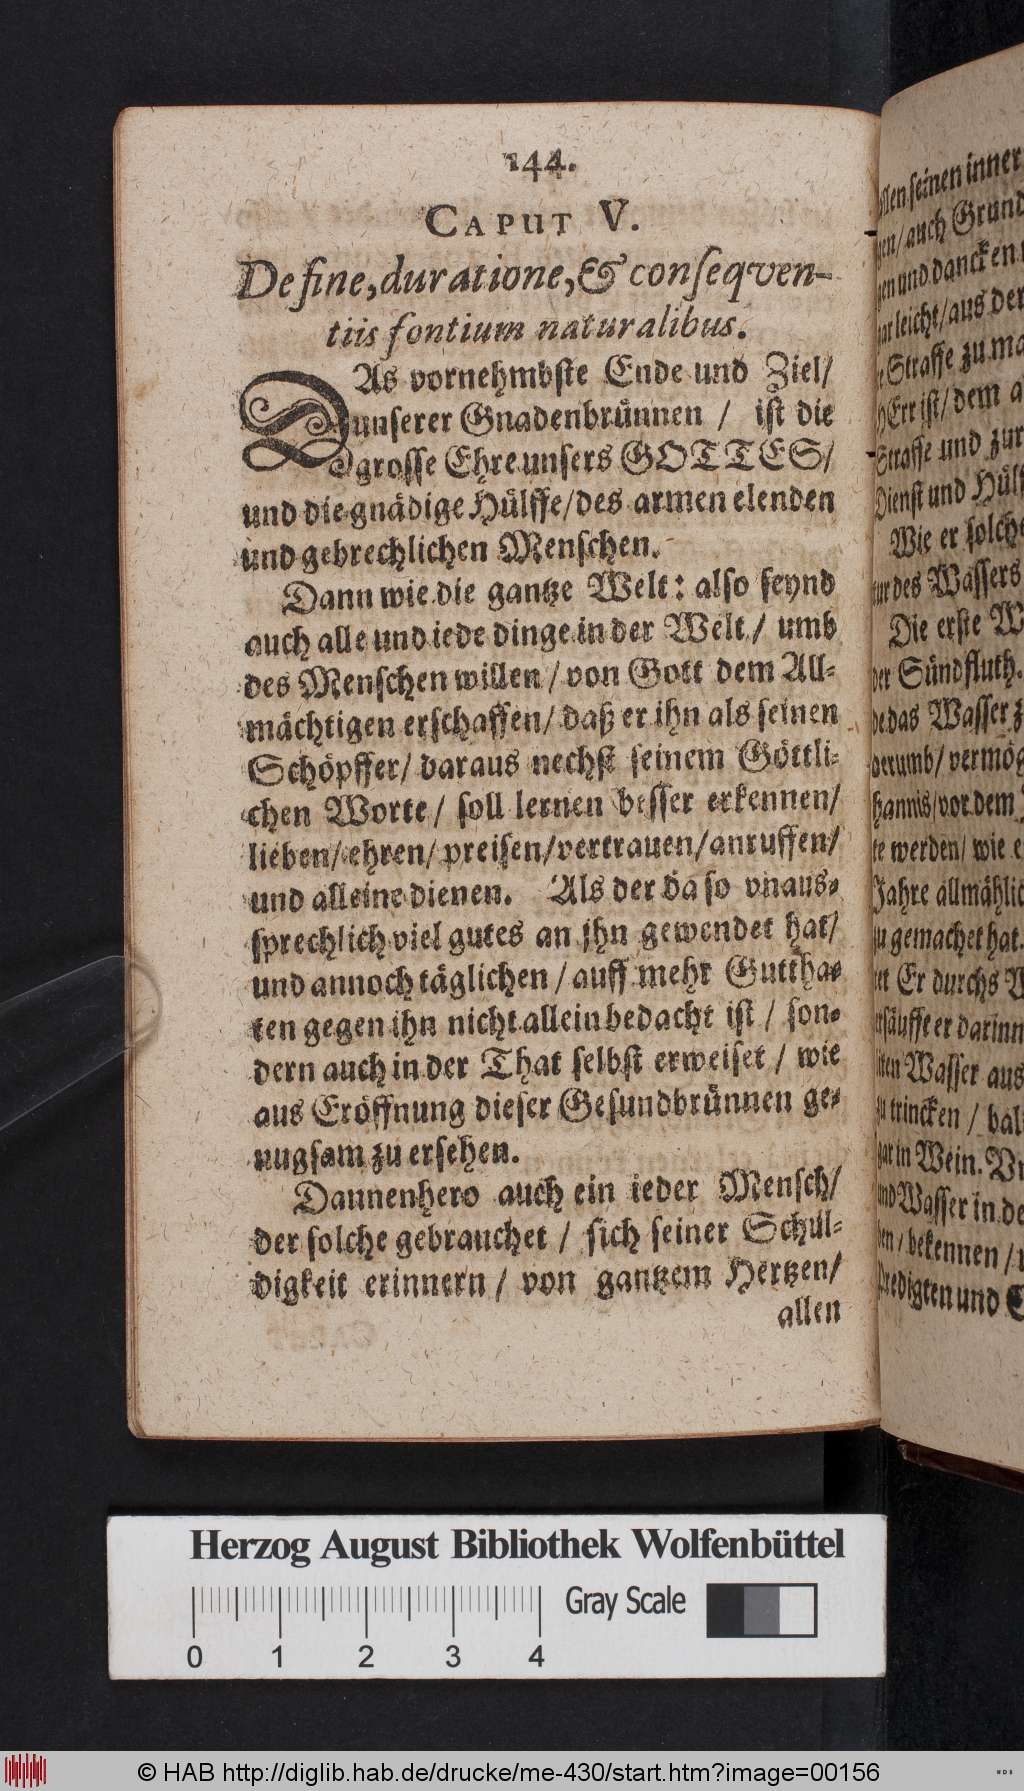 144.
CAPUT V.
De fine, duratione, & conseqven-
tiis fontium naturalibus.
DAs vornehmbste Ende und Ziel/
unserer Gnadenbrünnen / ist die
grosse Ehre unsers GOTTES/
und die gnädige Hülffe/des armen elenden
und gebrechlichen Menschen.
Dann wie die gantze Welt: also seynd
auch alle und iede dinge in der Welt/ umb
des Menschen willen/von Gott dem All-
mächtigen erschaffen/daß er ihn als seinen
Schöpffer/ daraus nechst seinem Göttli-
chen Worte/ soll lernen besser erkennen/
lieben/ehren/preisen/vertrauen/anruffen/
und alleine dienen. Als der da so vnaus-
sprechlich viel gutes an jhn gewendet hat/
und annoch täglichen/auff mehr Guttha-
ten gegen ihn nicht allein bedacht ist/ son-
dern auch in der That selbst erweiset/ wie
aus Eröffnung dieser Gesundbrünnen ge-
nugsam zu ersehen.
Dannenhero auch ein ieder Mensch/
der solche gebrauchet / sich seiner Schül-
digkeit erinnern/ von gantzem Hertzen/
allen
seinen inner
auch Grund
und dancken
leicht/aus der
Straffe zu
HErr ist/dem
Straffe und zur
Dienst und
Wie er
des Wassers
Die erste
der Sündfluth.
das Wasser
vor dem
werden/ wie
Jahre
gemachet hat.
Er durchs
er darinn
Wasser aus
trincken / bal
in Wein.
Wasser in
bekennen/
Predigten und
Herzog August Bibliothek Wolfenbüttel
0 1 2 3 4
Gray Scale
© HAB http://diglib.hab.de/drucke/me-430/start.htm?image=00156